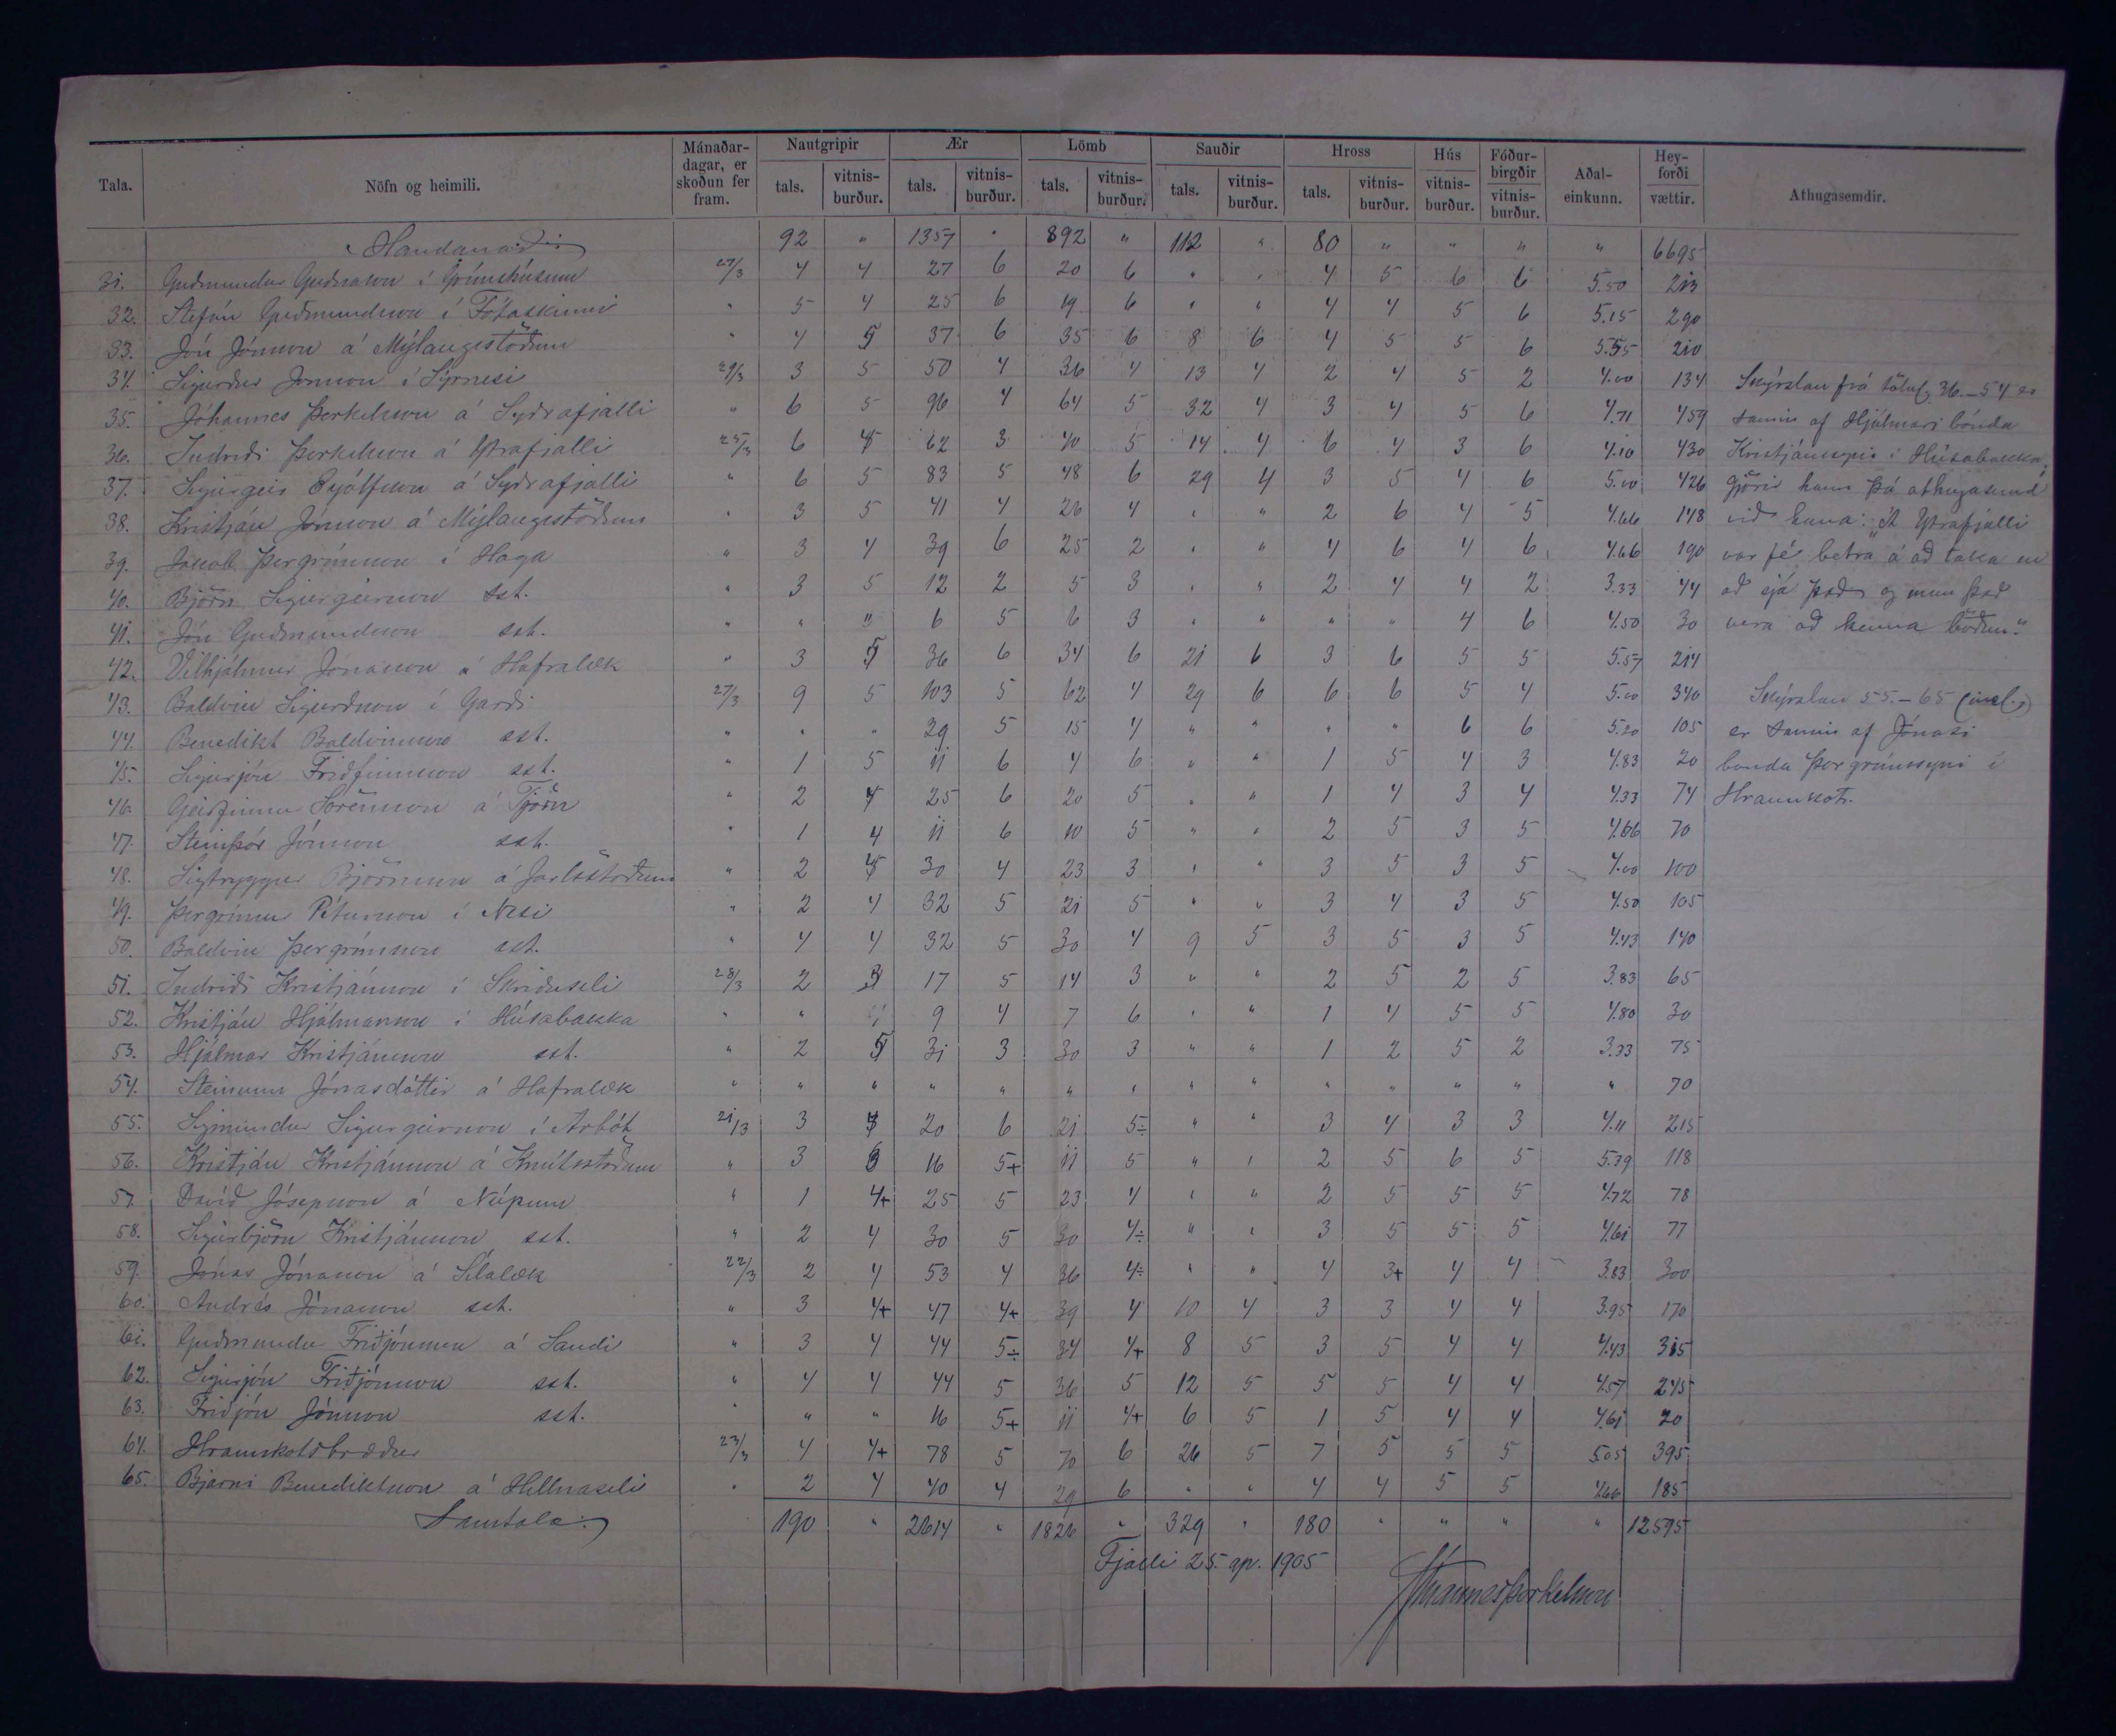 Tala. Nöfn og heimili. Mánaðar-dagar, er skoðun fer fram. Nautgripir tals. vitnis-burður. Ær tals. vitnis-burður. Lömb tals. vitnis-burður. Sauðir tals. vitnis-burður. Hross tals. vitnis-burður. Hús vitnis-burður. Fóður-birgðir vitnis-burður. Aðal-einkunn. Hey-forði vættir. Athugasemdir.
Handanað: 92 " 1357 " 892 " 112 " 80 " " " " 6695
31. Guðmundur Guðnason í Grímshúsum 27/3 4 4 27 6 20 6 " " 4 5 6 6 5.50 213
32. Stefán Guðmundsson í Fótaskinni " 5 4 25 6 19 6 " " 4 4 5 6 5.15 290
33. Jón Jónsson á Mýlaugsstöðum " 4 5 37 6 35 6 8 6 4 5 5 6 5.55 210
34. Sigurður Jónsson í Sýrnesi 29/3 3 5 50 4 36 4 13 4 2 4 5 2 4.00 134 Skýrslan frá tölul. 36.-54 er
35. Jóhannes Þorkelsson á Syðrafjalli " 6 5 96 4 64 5 32 4 3 4 5 6 4.71 459 samin af Hjálmari bónda
36. Indriði Þorkelsson á Ytrafjalli 25/3 6 4 62 3 40 5 14 4 6 4 3 6 4.10 430 Kristjánssyni í Húsabakka;
37. Sigurgeir Eyjólfsson á Syðrafjalli " 6 5 83 5 48 6 29 4 3 5 4 6 5.00 426 gjörir hann þá athugasemd
38. Kristján Jónsson á Mýlaugsstöðum " 3 5 41 4 26 4 " " 2 6 4 5 4.66 148 við hana: "Á Ytrafjalli
39. Jakob Þorgrímsson í Haga " 3 4 39 6 25 2 " " 4 6 4 6 4.66 190 var fé betra á að taka en
40. Björn Sigurgeirsson sst. " 3 5 12 2 5 3 " " 2 4 4 2 3.33 44 að sjá það og mun það
41. Jón Guðmundsson sst. " " " 6 5 6 3 " " " " 4 6 4.50 30 vera að kenna böðun."
42. Vilhjálmur Jónasson á Hafralæk " 3 5 36 6 34 6 21 6 3 6 5 5 5.57 214
43. Baldvin Sigurðsson í Garði 27/3 9 5 103 5 62 4 29 6 6 6 5 4 5.00 340 Skýrslan 55.-65 (incl.)
44. Benedikt Baldvinsson sst. " " " 29 5 15 4 " " " " 6 6 5.20 105 er samin af Jónasi
45. Sigurjón Friðfinnsson sst. " 1 5 11 6 4 6 " " 1 5 4 3 4.83 20 bónda Þorgrímssyni í
46. Geirfinnur Sörensson á Tjörn " 2 4 25 6 20 5 " " 1 4 3 4 4.33 74 Hraunkoti.
47. Steinþór Jónsson sst. " 1 4 11 6 10 5 " " 2 5 3 5 4.66 70
48. Sigtryggur Björnsson á Jarlsstöðum " 2 4 30 4 23 3 " " 3 5 3 5 4.00 100
49. Þorgrímur Pétursson í Nesi " 2 4 32 5 21 5 " " 3 4 3 5 4.50 105
50. Baldvin Þorgrímsson sst. " 4 4 32 5 30 4 9 5 3 5 3 5 4.43 140
51. Indriði Kristjánsson í Skriðuseli 28/3 2 3 17 5 14 3 " " 2 5 2 5 3.83 65
52. Kristján Hjálmarsson í Húsabakka " " 9 4 7 6 " " 1 4 5 5 4.80 30
53. Hjálmar Kristjánsson sst. " 2 5 31 3 30 3 " " 1 2 5 2 3.33 75
54. Steinunn Jónasdóttir á Hafralæk " " " " " " " " " " " " " " 70
55. Sigmundur Sigurgeirsson í Árbót 21/3 3 20 6 21 5÷ " " 3 4 3 3 4.11 215
56. Kristján Kristjánsson á Knútsstöðum " 3 16 5+ 11 5 " " 2 5 6 5 5.39 118
57. Davíð Jósepsson á Núpum " 1 4+ 25 5 23 4 " " 2 5 5 5 4.72 78
58. Sigurbjörn Kristjánsson sst. " 2 4 30 5 30 4÷ " " 3 5 5 5 4.61 77
59. Jónas Jónasson á Sílalæk 22/3 2 4 53 4 36 4÷ " " 4 3+ 4 4 3.83 300
60. Andrés Jónasson sst. " 3 4+ 47 4+ 39 4 10 4 3 3 4 4 3.95 170
61. Guðmundur Friðjónsson á Sandi " 3 4 44 5÷ 34 4+ 8 5 3 5 4 4 4.43 315
62. Sigurjón Friðjónsson sst. " 4 4 44 5 36 5 12 5 5 5 4 4 4.57 245
63. Friðjón Jónsson sst. " " " 16 5+ 11 4+ 6 5 1 5 4 4 4.61 20
64. Hraunkotsbræður 23/3 4 4+ 78 5 70 6 26 5 7 5 5 5 5.05 395
65. Bjarni Benediktsson á Hellnaseli " 2 4 40 4 29 6 " " 4 4 5 5 4.66 185
Samtals: 190 " 2614 " 1826 " 329 " 180 " " " " 12595
Fjalli 25. ap. 1905
Jóhannes Þorkelsson